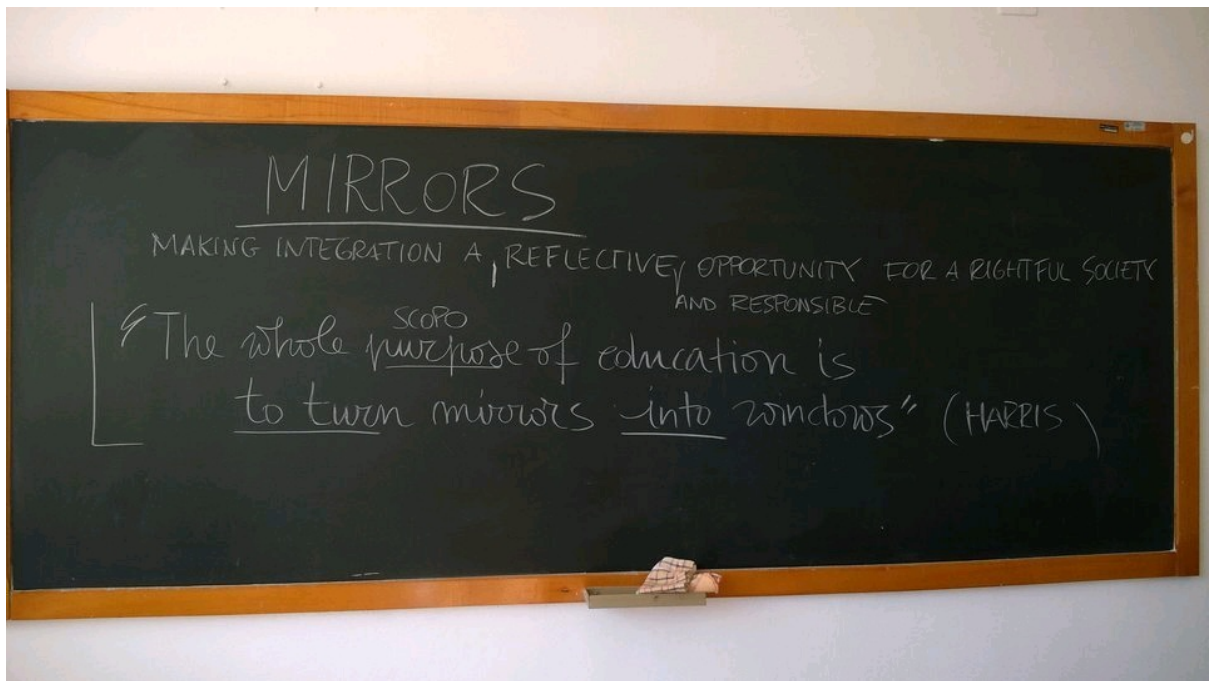 MIRRORS
MAKING INTEGRATION A, REFLECTIVE, OPPORTUNITY FOR A RIGHTFUL SOCIETY
AND RESPONSIBLE
SCOPO
"The whole purpose of education is
to turn mirrors into windows" (HARRIS)